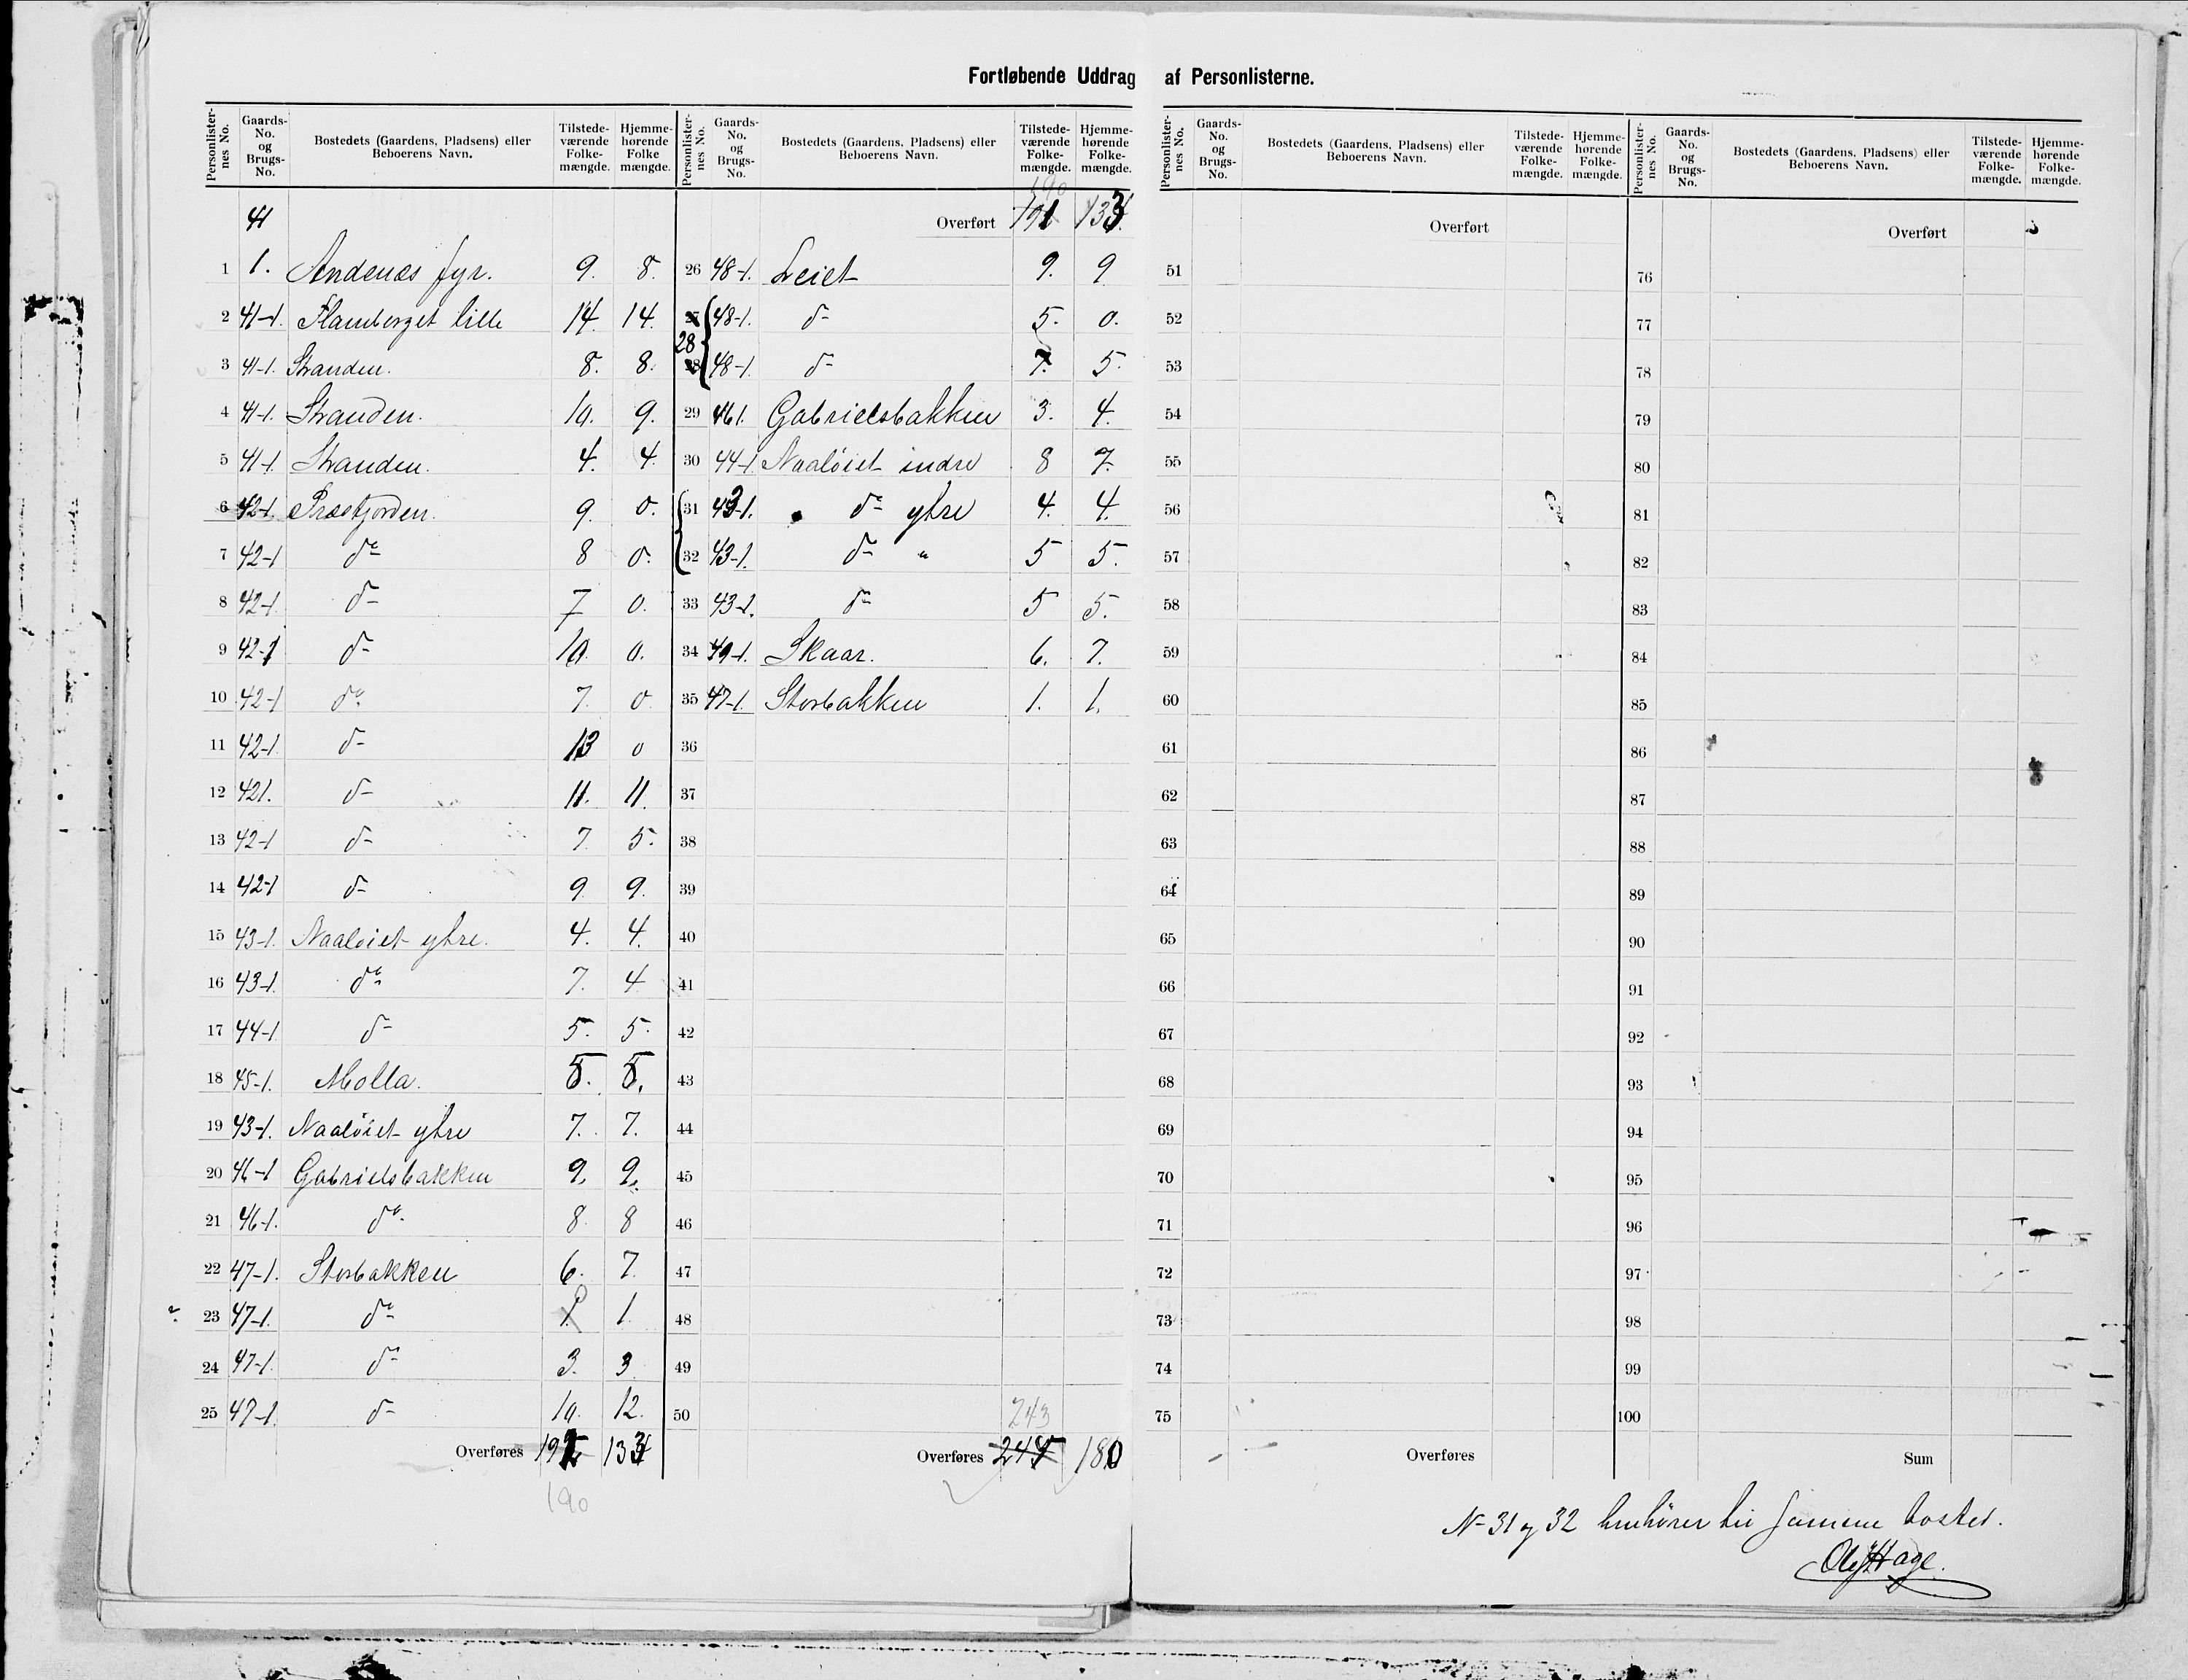 Fortløbende Uddrag af Personlisterne.
Personlister-nes No. Gaards-No. og Brugs-No. Bostedets (Gaardens, Pladsens) eller Beboerens Navn. Tilstede-værende Folke-mængde. Hjemme-hørende Folke-mængde.
41
1 1. Andenæs fyr. 9. 8.
2 41-1. Flamberget lille 14. 14.
3 41-1. Stranden. 8. 8.
4 41-1. Stranden. 10. 9.
5 41-1 Stranden. 4. 4.
6 42-1. Præstjorden. 9. 0.
7 42-1 do 8 0.
8 42-1. d- 7 0.
9 42-1 d- 10. 0.
10 42-1 do 7. 0
11 42-1. d- 13 0
12 421. d- 11. 11.
13 42-1 d- 7 5.
14 42-1 d- 9 9.
15 43-1. Naaløiet ytre. 4. 4.
16 43-1. do 7. 4
17 44-1 d- 5. 5.
18 45-1. Molla. 5. 5.
19 43-1. Naaløiet ytre 7. 7.
20 46-1 Gabrielsbakken 9. 9.
21 46-1. do 8. 8
22 47-1. Storbakken 6. 7.
23 47-1. do 1. 1.
24 47-1. do 3. 3
25 47-1. d- 10. 12.
Overføres 133
190
Personlister-nes No. Gaards-No. og Brugs-No. Bostedets (Gaardens, Pladsens) eller Beboerens Navn. Tilstede-værende Folke-mængde. Hjemme-hørende Folke-mængde.
190
Overført 191 133
26 48-1. Leiet 9. 9
27 48-1. d- 5. 0.
28
28 48-1 d- 7. 5.
29 461. Gabrielsbakken 3. 4.
30 44-1 Naaløiet indre 8 7.
31 43-1. do ytre 4. 4.
32 43-1. do " 5 5.
33 43-1. do 5 5.
34 49-1. Skaar. 6. 7.
35 47-1. Storbakken 1. 1.
36
37
38
39
40
41
42
43
44
45
46
47
48
49
50 243
Overføres 180
Personlister-nes No. Gaards-No. og Brugs-No. Bostedets (Gaardens, Pladsens) eller Beboerens Navn. Tilstede-værende Folke-mængde. Hjemme-hørende Folke-mængde.
Overført
51
52
53
54
55
56
57
58
59
60
61
62
63
64
65
66
67
68
69
70
71
72
73
74
75
Overføres
Personlister-nes No. Gaards-No. og Brugs-No. Bostedets (Gaardens, Pladsens) eller Beboerens Navn. Tilstede-værende Folke-mængde. Hjemme-hørende Folke-mængde.
Overført
76
77
78
79
80
81
82
83
84
85
86
87
88
89
90
91
92
93
94
95
96
97
98
99
100
Sum
N- 31 og 32 henhører til samme bosted.
Hage.